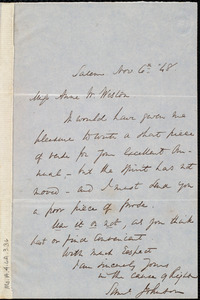 Salem Nov 6th '48
Miss Anne W. Weston
It would have given me
pleasure to write a short piece
of verse for your Excellent An-
nual - but the Spirit has not
moved - and I must send you
a poor piece of prose.
Use it or not, as you think
best or find convenient
With much Respect
I am sincerely Yours
in the cause of Right
Saml Johnson